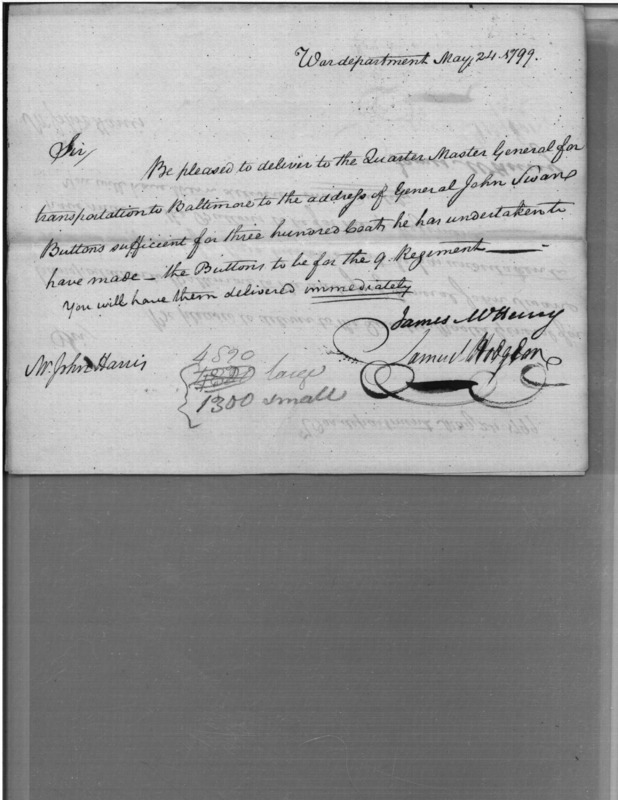 War department May 24. 1799.
Sir
Be pleased to deliver to the Quarter Master General for
transportation to Baltimore to the address of General John Swan
Buttons sufficient for three hundred Coats he has undertaken to
have made — the Buttons to be for the 9. Regiment
You will have them delivered immediately
James McHenry
Samuel Hodgdon
Mr. John Harris
large
1300 small